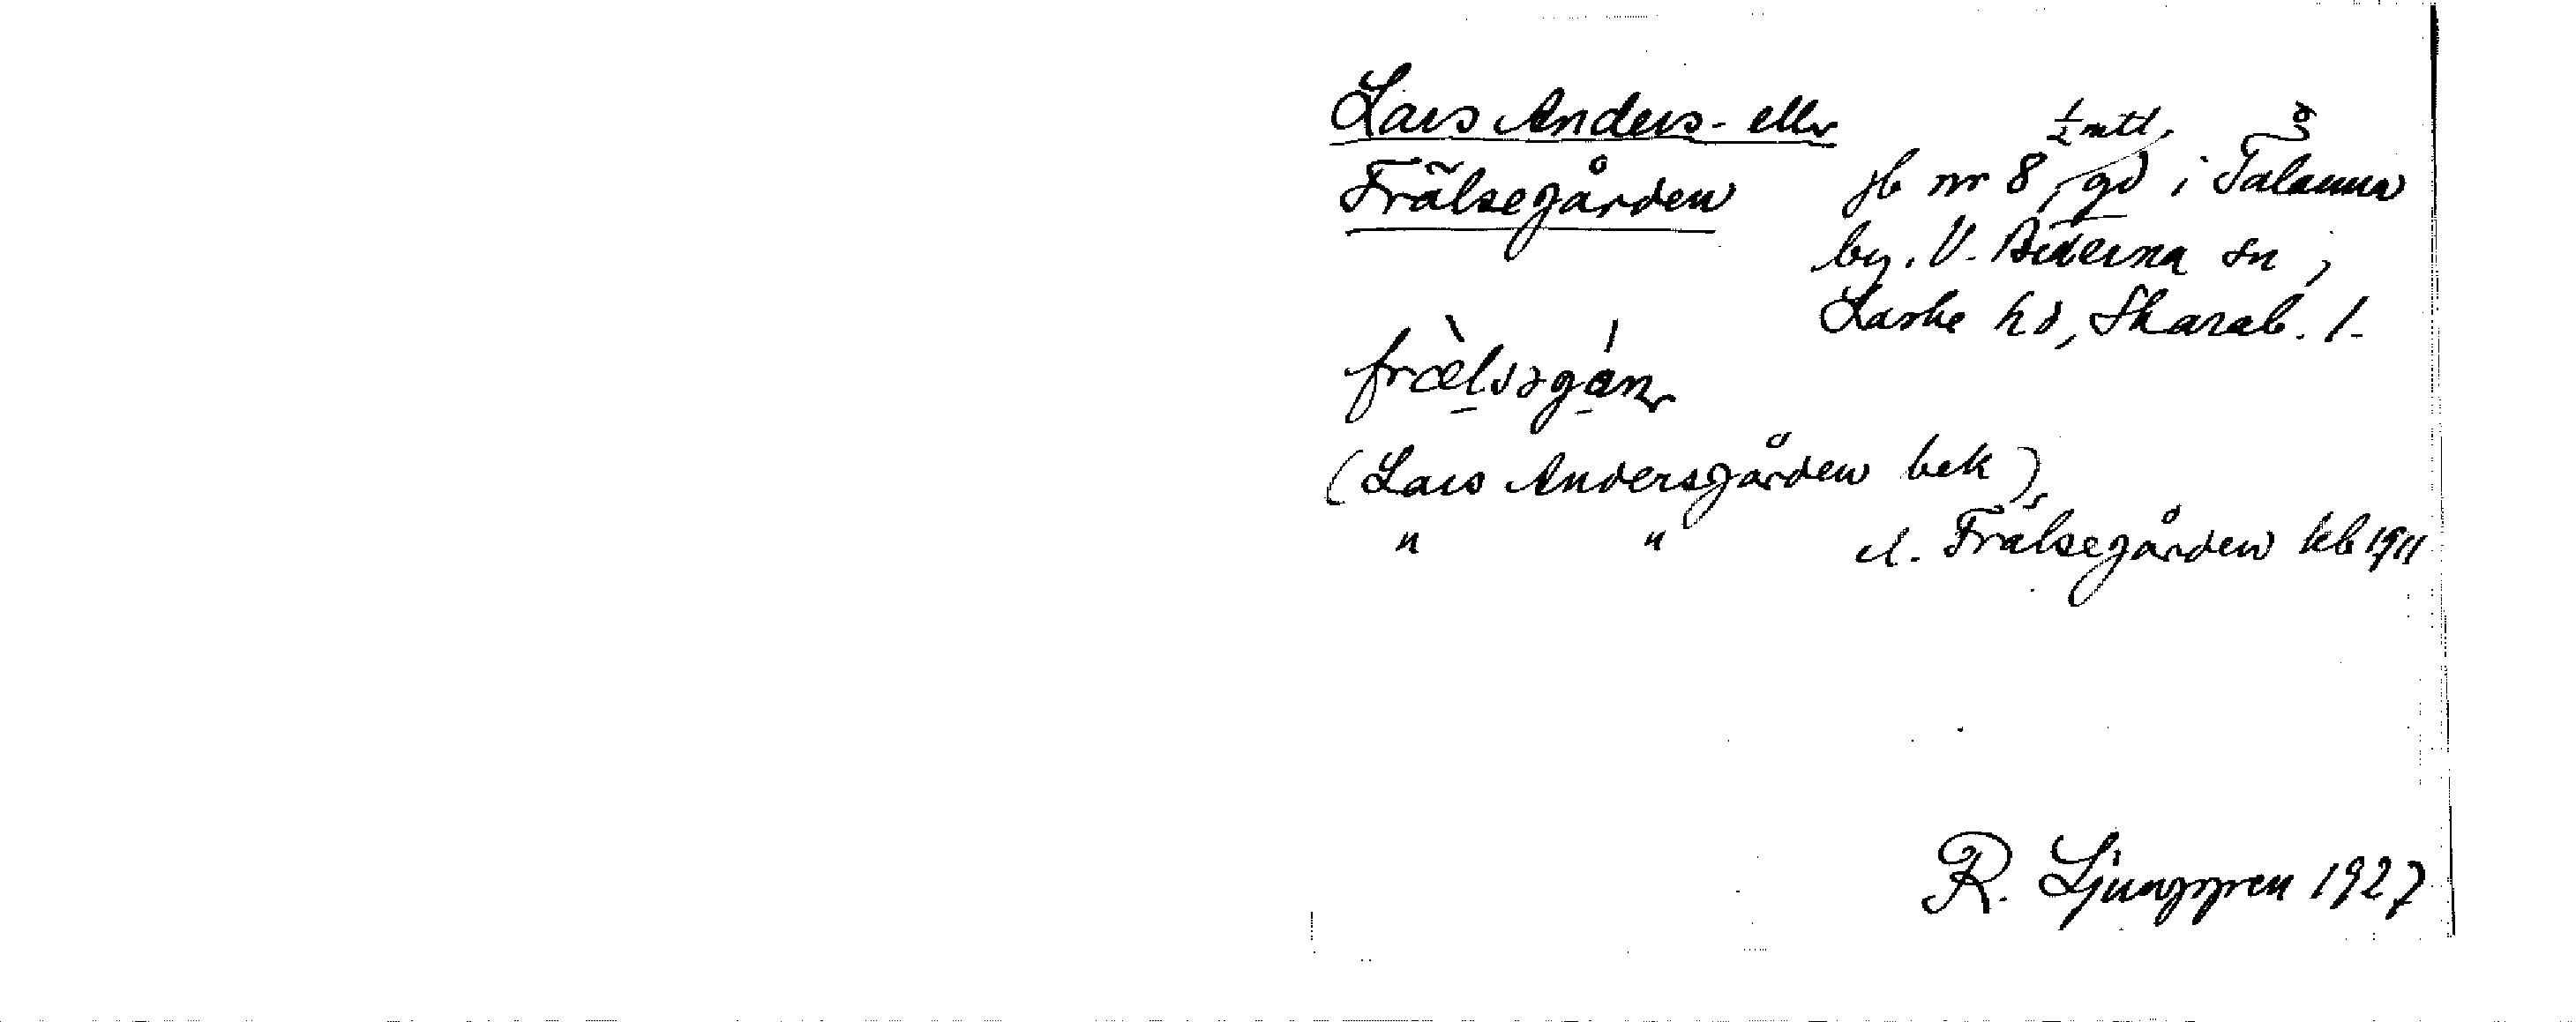 Lars Anders- eller
Frälsegården
jb nr 8, 1/2 mtl, gd i Talanna
by. V. Bitterna sn,
Laske hd, Skarab. l.
frælsəgán
(Lars Andersgården bek),
" " el. Frälsegården kb 1911
R. Ljunggren 1927